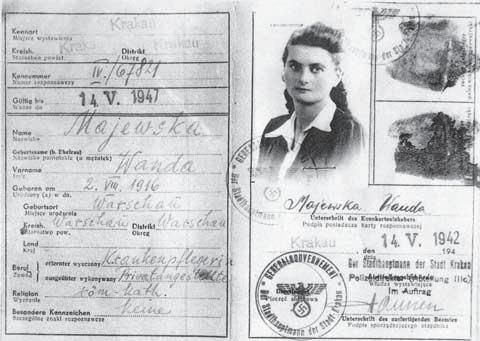 Kennort Krakau
Miejsce wystawienia
Kreish. Distrikt Krakau
Starostwo powiat. Okręg
Kennummer IV/6/821
Numer rozpoznawczy
Gültig bis 14. V. 1947
Ważna do
Name Majewska
Nazwisko
Geburtsname (b. Ehefrau)
Nazwisko panieńskie (u mężatek)
Vorname Wanda
Imię
Geboren am 2. VIII. 1916
Urodzony (a) w dn.
Geburtsort Warschau
Miejsce urodzenia
Kreish. Warschau Distrikt Warschau
Starostwo pow. Okręg
Land
Kraj
Beruf erlernter Krankenpflegerin
Zawód wyuczony
ausgeübter Privatangestellte
wykonywany
Religion röm-kath.
Wyznanie
Besondere Kennzeichen keine
Szczególne znaki rozpoznawcze
Majewska Wanda
Unterschrift des Kennkarteninhabers
Podpis posiadacza karty rozpoznawczej
Krakau, den 14. V. 1942
Der Stadthauptmann der Stadt Krakau
Im Auftrag
GENERALGOUVERNEMENT
Der Stadthauptmann der Stadt Krakau
Pieczęć
Unterschrift des ausfertigenden Beamten
Podpis sporządzającego urzędnika